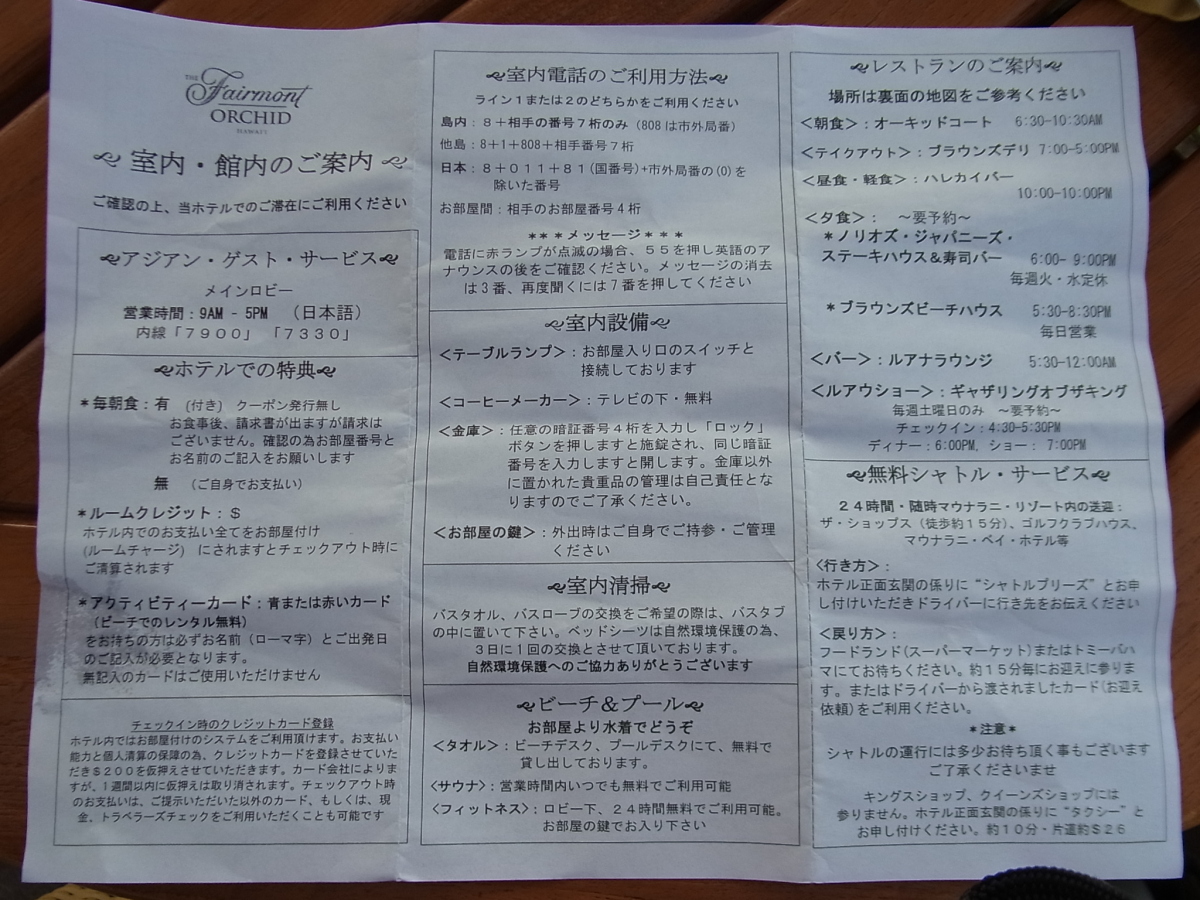 THE Fairmont
ORCHID
HAWAII
室内・館内のご案内
ご確認の上、当ホテルでのご滞在にご利用ください
アジアン・ゲスト・サービス
メインロビー
営業時間：9AM - 5PM （日本語）
内線「７９００」「７３３０」
ホテルでの特典
＊毎朝食：有 (付き) クーポン発行無し
お食事後、請求書が出ますが請求は
ございません。確認の為お部屋番号と
お名前のご記入をお願いします
無 （ご自身でお支払い）
＊ルームクレジット：＄
ホテル内でのお支払い全てをお部屋付け
(ルームチャージ) にされますとチェックアウト時に
ご清算されます
＊アクティビティーカード：青または赤いカード
（ビーチでのレンタル無料）
をお持ちの方は必ずお名前（ローマ字）とご出発日
のご記入が必要となります。
無記入のカードはご使用いただけません
チェックイン時のクレジットカード登録
ホテル内ではお部屋付けのシステムをご利用頂けます。お支払い
能力と個人清算の保障の為、クレジットカードを登録させていた
だき＄２００を仮押えさせていただきます。カード会社によりま
すが、１週間以内に仮押えは取り消されます。チェックアウト時
のお支払いは、ご提示いただいた以外のカード、もしくは、現
金、トラベラーズチェックをご利用いただくことも可能です
室内電話のご利用方法
ライン１または２のどちらかをご利用ください
島内：８＋相手の番号７桁のみ（808は市外局番）
他島：8+1+808+相手番号７桁
日本：８＋０１１＋８１(国番号)+市外局番の(0)を
除いた番号
お部屋間：相手のお部屋番号４桁
＊＊＊メッセージ＊＊＊
電話に赤ランプが点滅の場合、５５を押し英語のア
ナウンスの後をご確認ください。メッセージの消去
は３番、再度聞くには７番を押してください
室内設備
<テーブルランプ>：お部屋入り口のスイッチと
接続しております
<コーヒーメーカー>：テレビの下・無料
<金庫>：任意の暗証番号４桁を入力し「ロック」
ボタンを押しますと施錠され、同じ暗証
番号を入力しますと開します。金庫以外
に置かれた貴重品の管理は自己責任とな
りますのでご了承ください。
<お部屋の鍵>：外出時はご自身でご持参・ご管理
ください
室内清掃
バスタオル、バスローブの交換をご希望の際は、バスタブ
の中に置いて下さい。ベッドシーツは自然環境保護の為、
３日に１回の交換とさせて頂いております。
自然環境保護へのご協力ありがとうございます
ビーチ＆プール
お部屋より水着でどうぞ
<タオル>：ビーチデスク、プールデスクにて、無料で
貸し出しております。
<サウナ>：営業時間内いつでも無料でご利用可能
<フィットネス>：ロビー下、２４時間無料でご利用可能。
お部屋の鍵でお入り下さい
レストランのご案内
場所は裏面の地図をご参考ください
<朝食>：オーキッドコート 6:30-10:30AM
<テイクアウト>：ブラウンズデリ 7:00-5:00PM
<昼食・軽食>：ハレカイバー
10:00-10:00PM
<夕食>： ～要予約～
＊ノリオズ・ジャパニーズ・
ステーキハウス＆寿司バー 6:00- 9:00PM
毎週火・水定休
＊ブラウンズビーチハウス 5:30-8:30PM
毎日営業
<バー>：ルアナラウンジ 5:30-12:00AM
<ルアウショー>：ギャザリングオブザキング
毎週土曜日のみ ～要予約～
チェックイン：4:30-5:30PM
ディナー：6:00PM, ショー： 7:00PM
無料シャトル・サービス
２４時間・随時マウナラニ・リゾート内の送迎：
ザ・ショップス（徒歩約１５分）、ゴルフクラブハウス、
マウナラニ・ベイ・ホテル等
<行き方>：
ホテル正面玄関の係りに“シャトルプリーズ”とお申
し付けいただきドライバーに行き先をお伝えください
<戻り方>：
フードランド(スーパーマーケット)またはトミーバハ
マにてお待ちください。約１５分毎にお迎えに参りま
す。またはドライバーから渡されましたカード(お迎え
依頼)をご利用ください。
＊注意＊
シャトルの運行には多少お待ち頂く事もございます
ご了承くださいませ
キングスショップ、クイーンズショップには
参りません。ホテル正面玄関の係りに“タクシー”と
お申し付けください。約１０分・片道約＄２６